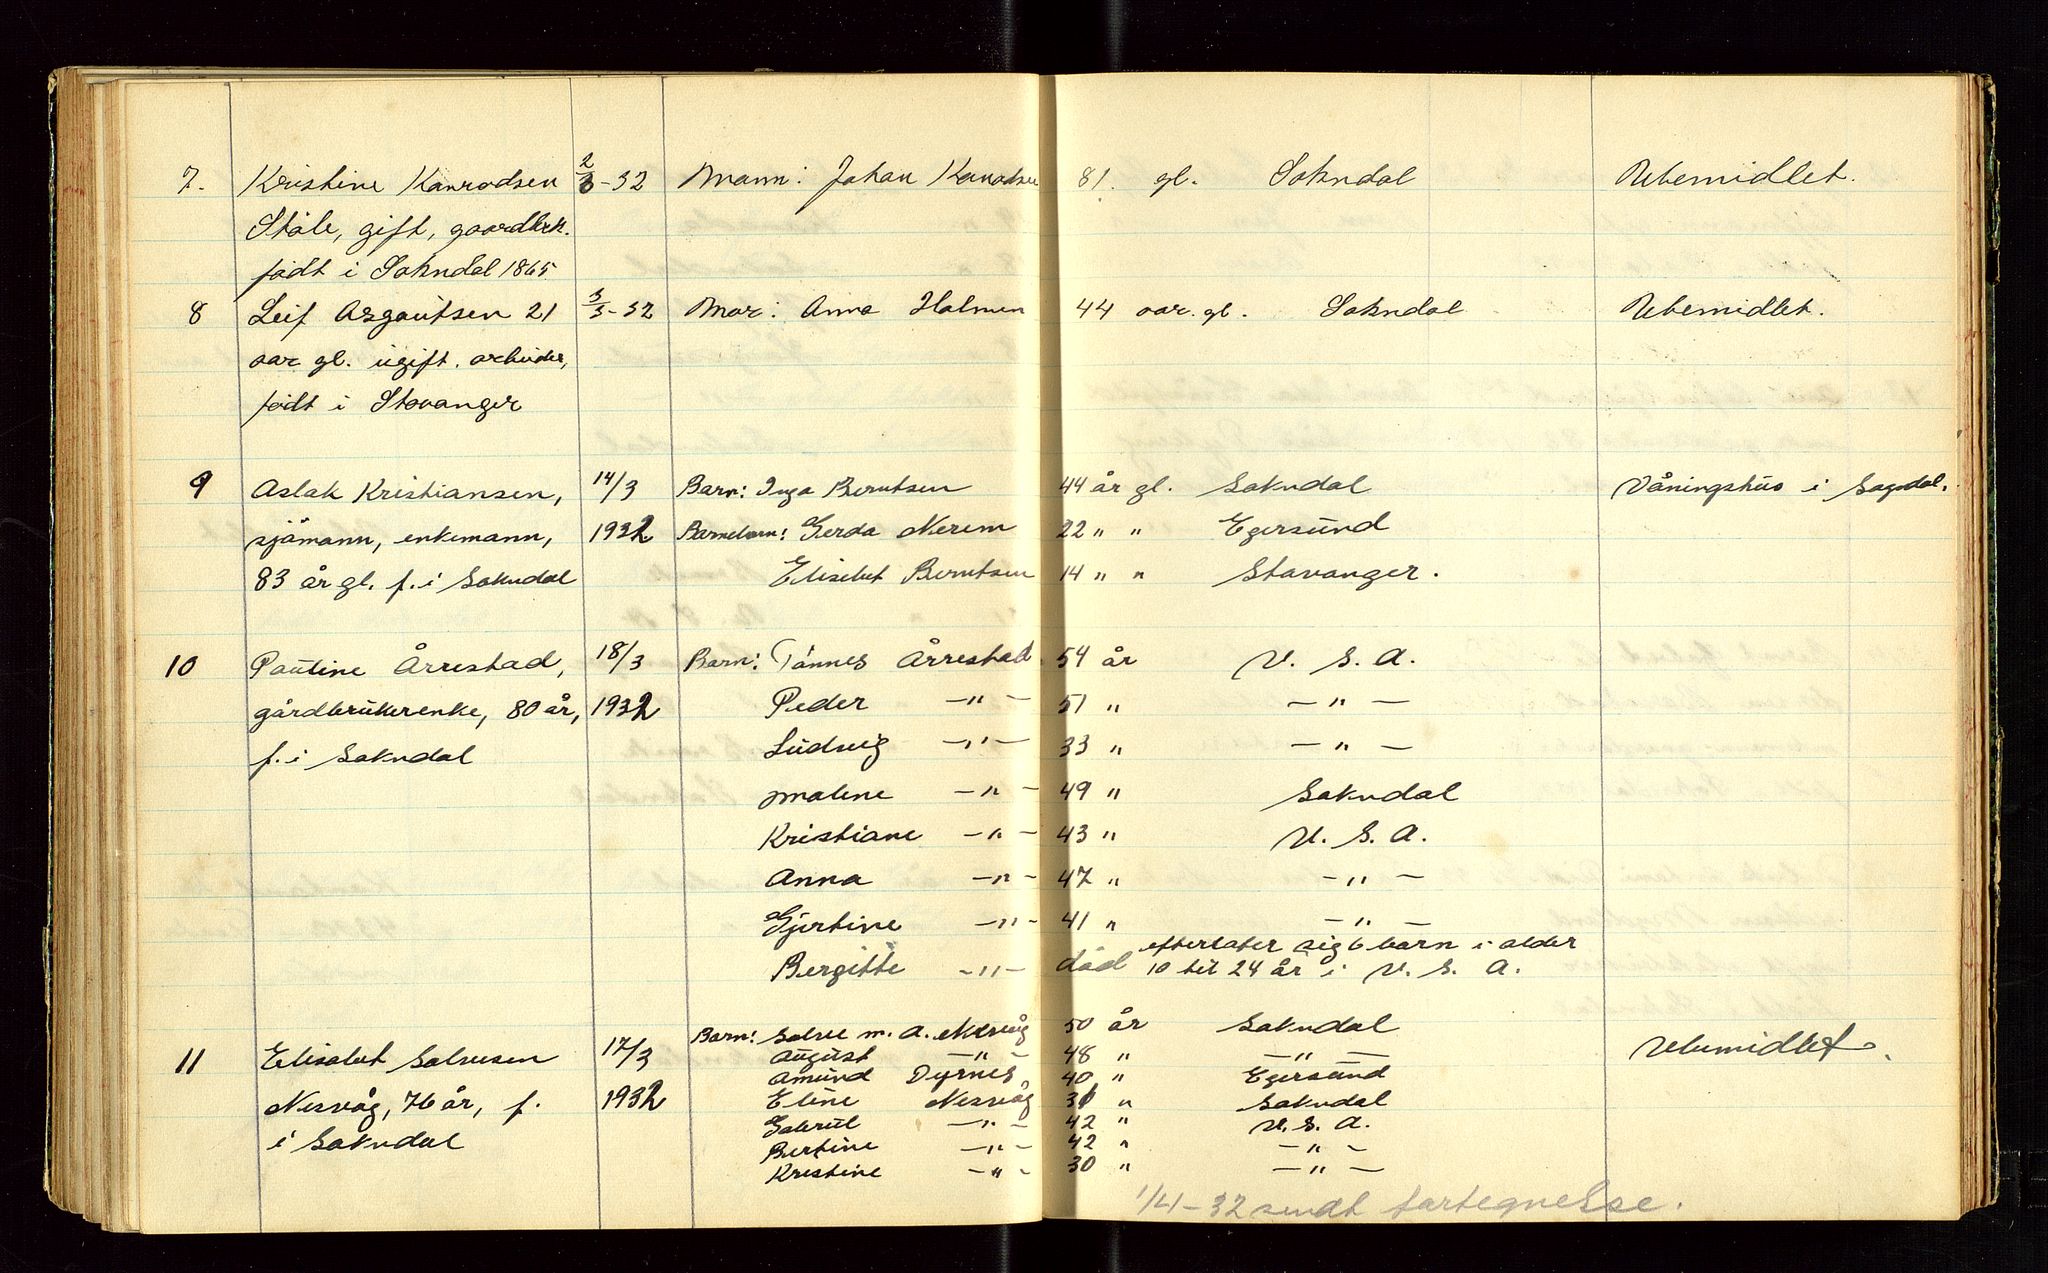 7. Kristine Kanrodsen 2/3-32 Mann: Johan Kanrodsen 81. gl. Sokndal Ubemidlet.
Ståle, gift, gaardbrk.
født i Sokndal 1865
8 Leif Asgautsen 21 3/3-32 Mor: Anna Holmen 44 aar. gl. Sokndal Ubemidlet.
aar gl. ugift. arbeider,
født i Stavanger
9 Aslak Kristiansen, 14/3 Barn: Inga Berntsen 44 år gl. Sokndal Våningshus i Sogndal.
sjømann, enkemann, 1932 Barnebarn: Gerda Nerem 22 " " Egersund
83 år gl. f. i Sokndal Elisabet Berntsen 14 " " Stavanger.
10 Pauline Årrestad, 18/3 Barn: Tønnes Årrestad 54 år U. S. A.
gårdbrukerenke, 80 år, 1932 Peder —"— 51 " —"—
f. i Sokndal Ludvig —"— 33 " —"—
Malene —"— 49 " Sokndal
Kristiane —"— 43 " U. S. A.
Anna —"— 47 " —"—
Gjertine —"— 41 " —"—
Bergitte —"— død efterlater sig 6 barn i alder
10 til 24 år i U. S. A.
11 Elisabet Salvesen 17/3 Barn: Salve m. A. Nesvåg 50 år Sokndal Ubemidlet.
August —"— 48 " —"—
Amund Dyrnes 40 " Egersund
Nesvåg, 76 år, f. 1932 Eline Nesvåg " Sokndal
Gabriel —"— 42 " U. S. A.
i Sokndal Bertine —"— 42 " —"—
Kristine —"— 30 " —"—
1/4-32 sendt fortegnelse.